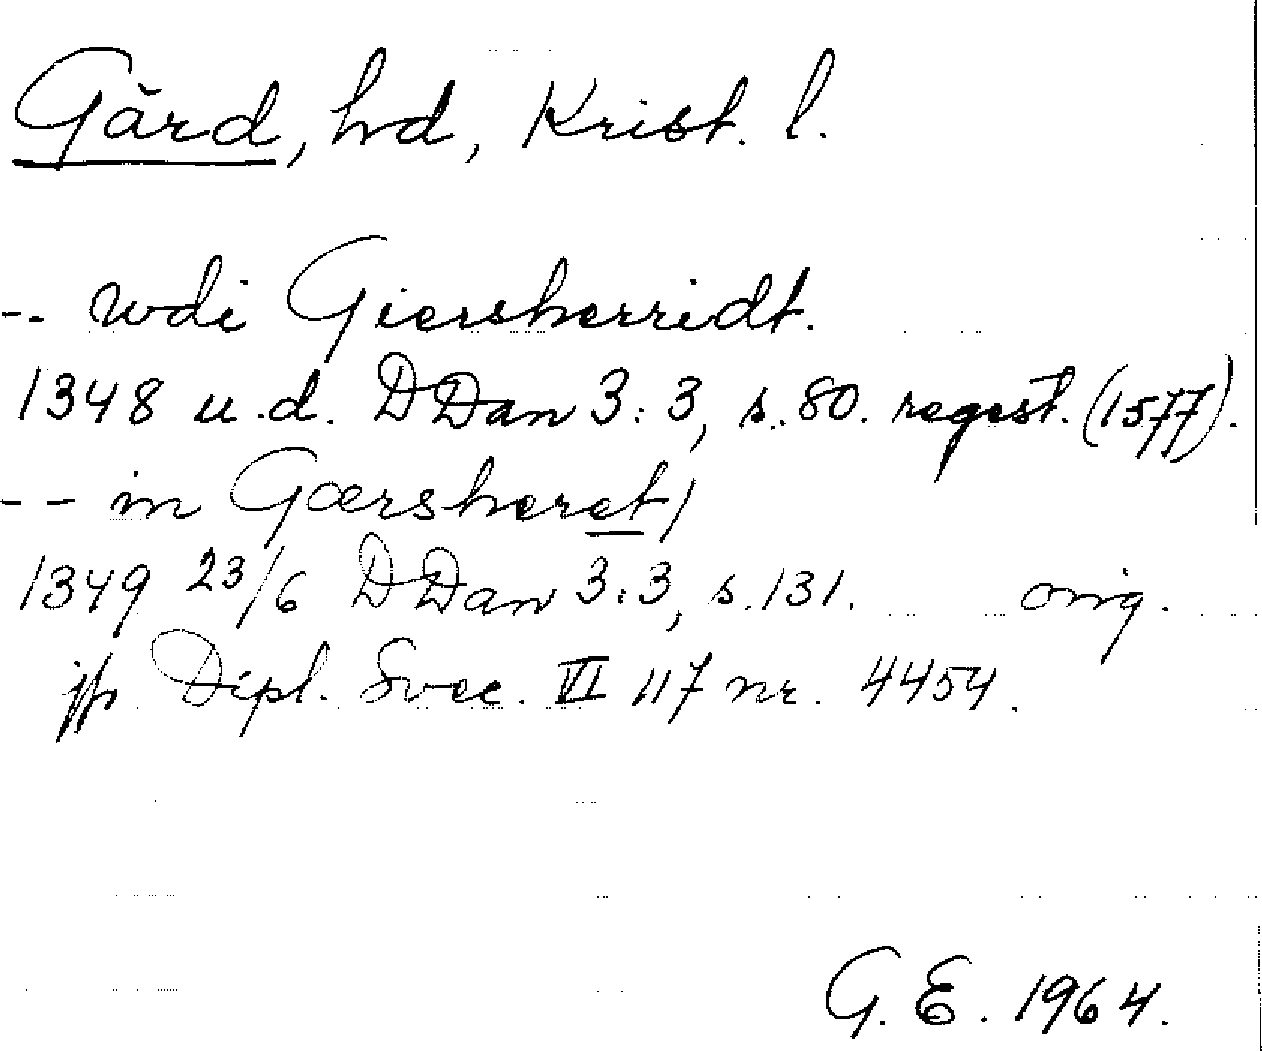 Gärd, hd, Krist. l.
-- wdi Giersherridt.
1348 u.d. DDan 3:3, s. 80. regest. (1577).
-- in Gærsheret/
1349 23/6 DDan 3:3, s. 131. orig.
jfr Dipl. Svec. VI 117 nr. 4454.
G. E. 1964.